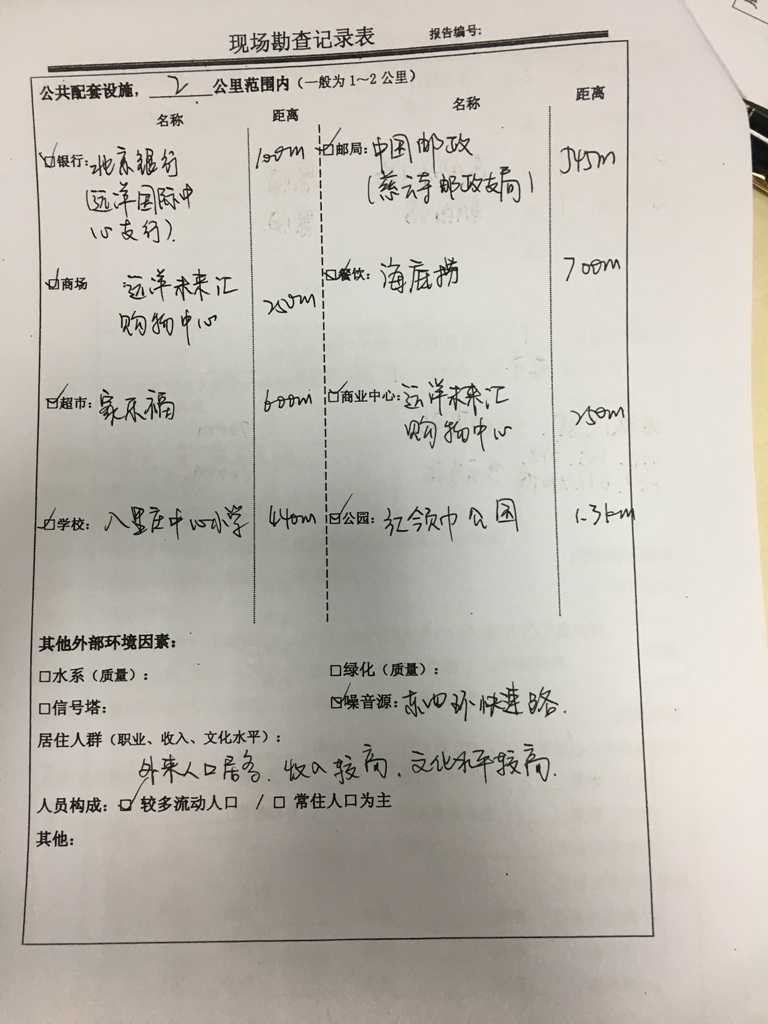 现场勘查记录表 报告编号:
公共配套设施，2公里范围内（一般为1～2公里）
名称 距离 名称 距离
☑银行：北京银行 100m ☑邮局：中国邮政 545m
(远洋国际中 (慈云寺邮政支局)
心支行).
☑商场 远洋未来汇 250m ☑餐饮：海底捞 700m
购物中心
☑超市：家乐福 600m ☑商业中心：远洋未来汇 250m
购物中心
☑学校：八里庄中心小学 440m ☑公园：红领巾公园 1.3km
其他外部环境因素：
□水系（质量）： □绿化（质量）：
□信号塔： ☑噪音源：东四环快速路.
居住人群（职业、收入、文化水平）：
外来人口居多、收入较高、文化水平较高.
人员构成：☑ 较多流动人口 / □ 常住人口为主
其他：